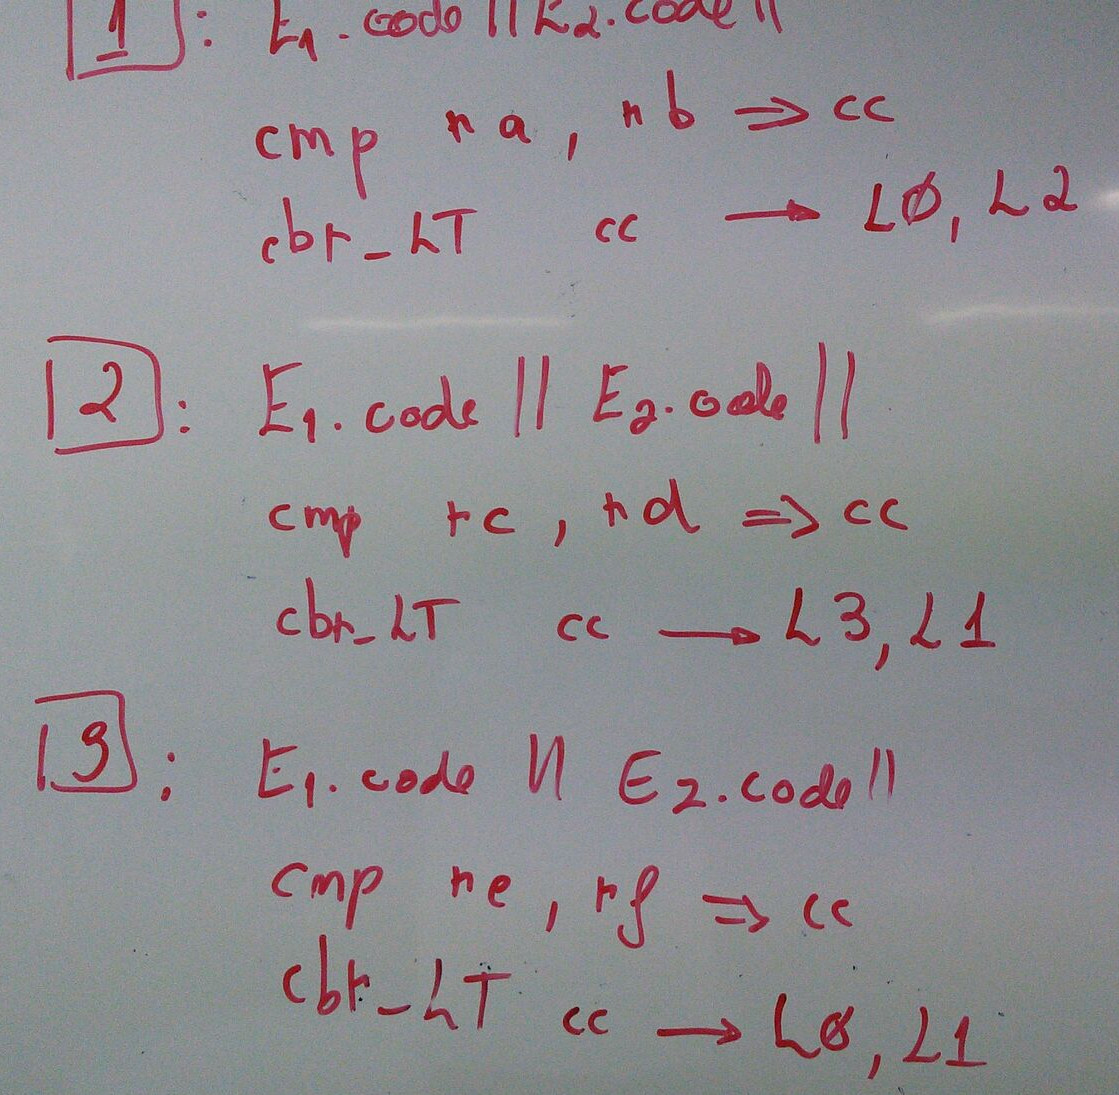 1: E1.code || E2.code ||
cmp ra, rb => cc
cbr_LT cc → L0, L2
2: E1.code || E2.code ||
cmp rc, rd => cc
cbr_LT cc → L3, L1
3: E1.code || E2.code ||
cmp re, rf => cc
cbr_LT cc → L0, L1